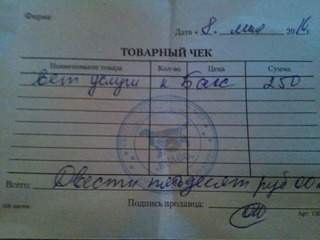 Фирма
Дата « 8. мая 2014г.
ТОВАРНЫЙ ЧЕК
Наименование товара Кол-во Цена Сумма
вет услуги к Бакс 250
Всего: Двести пятьдесят руб 00 к
Подпись продавца: